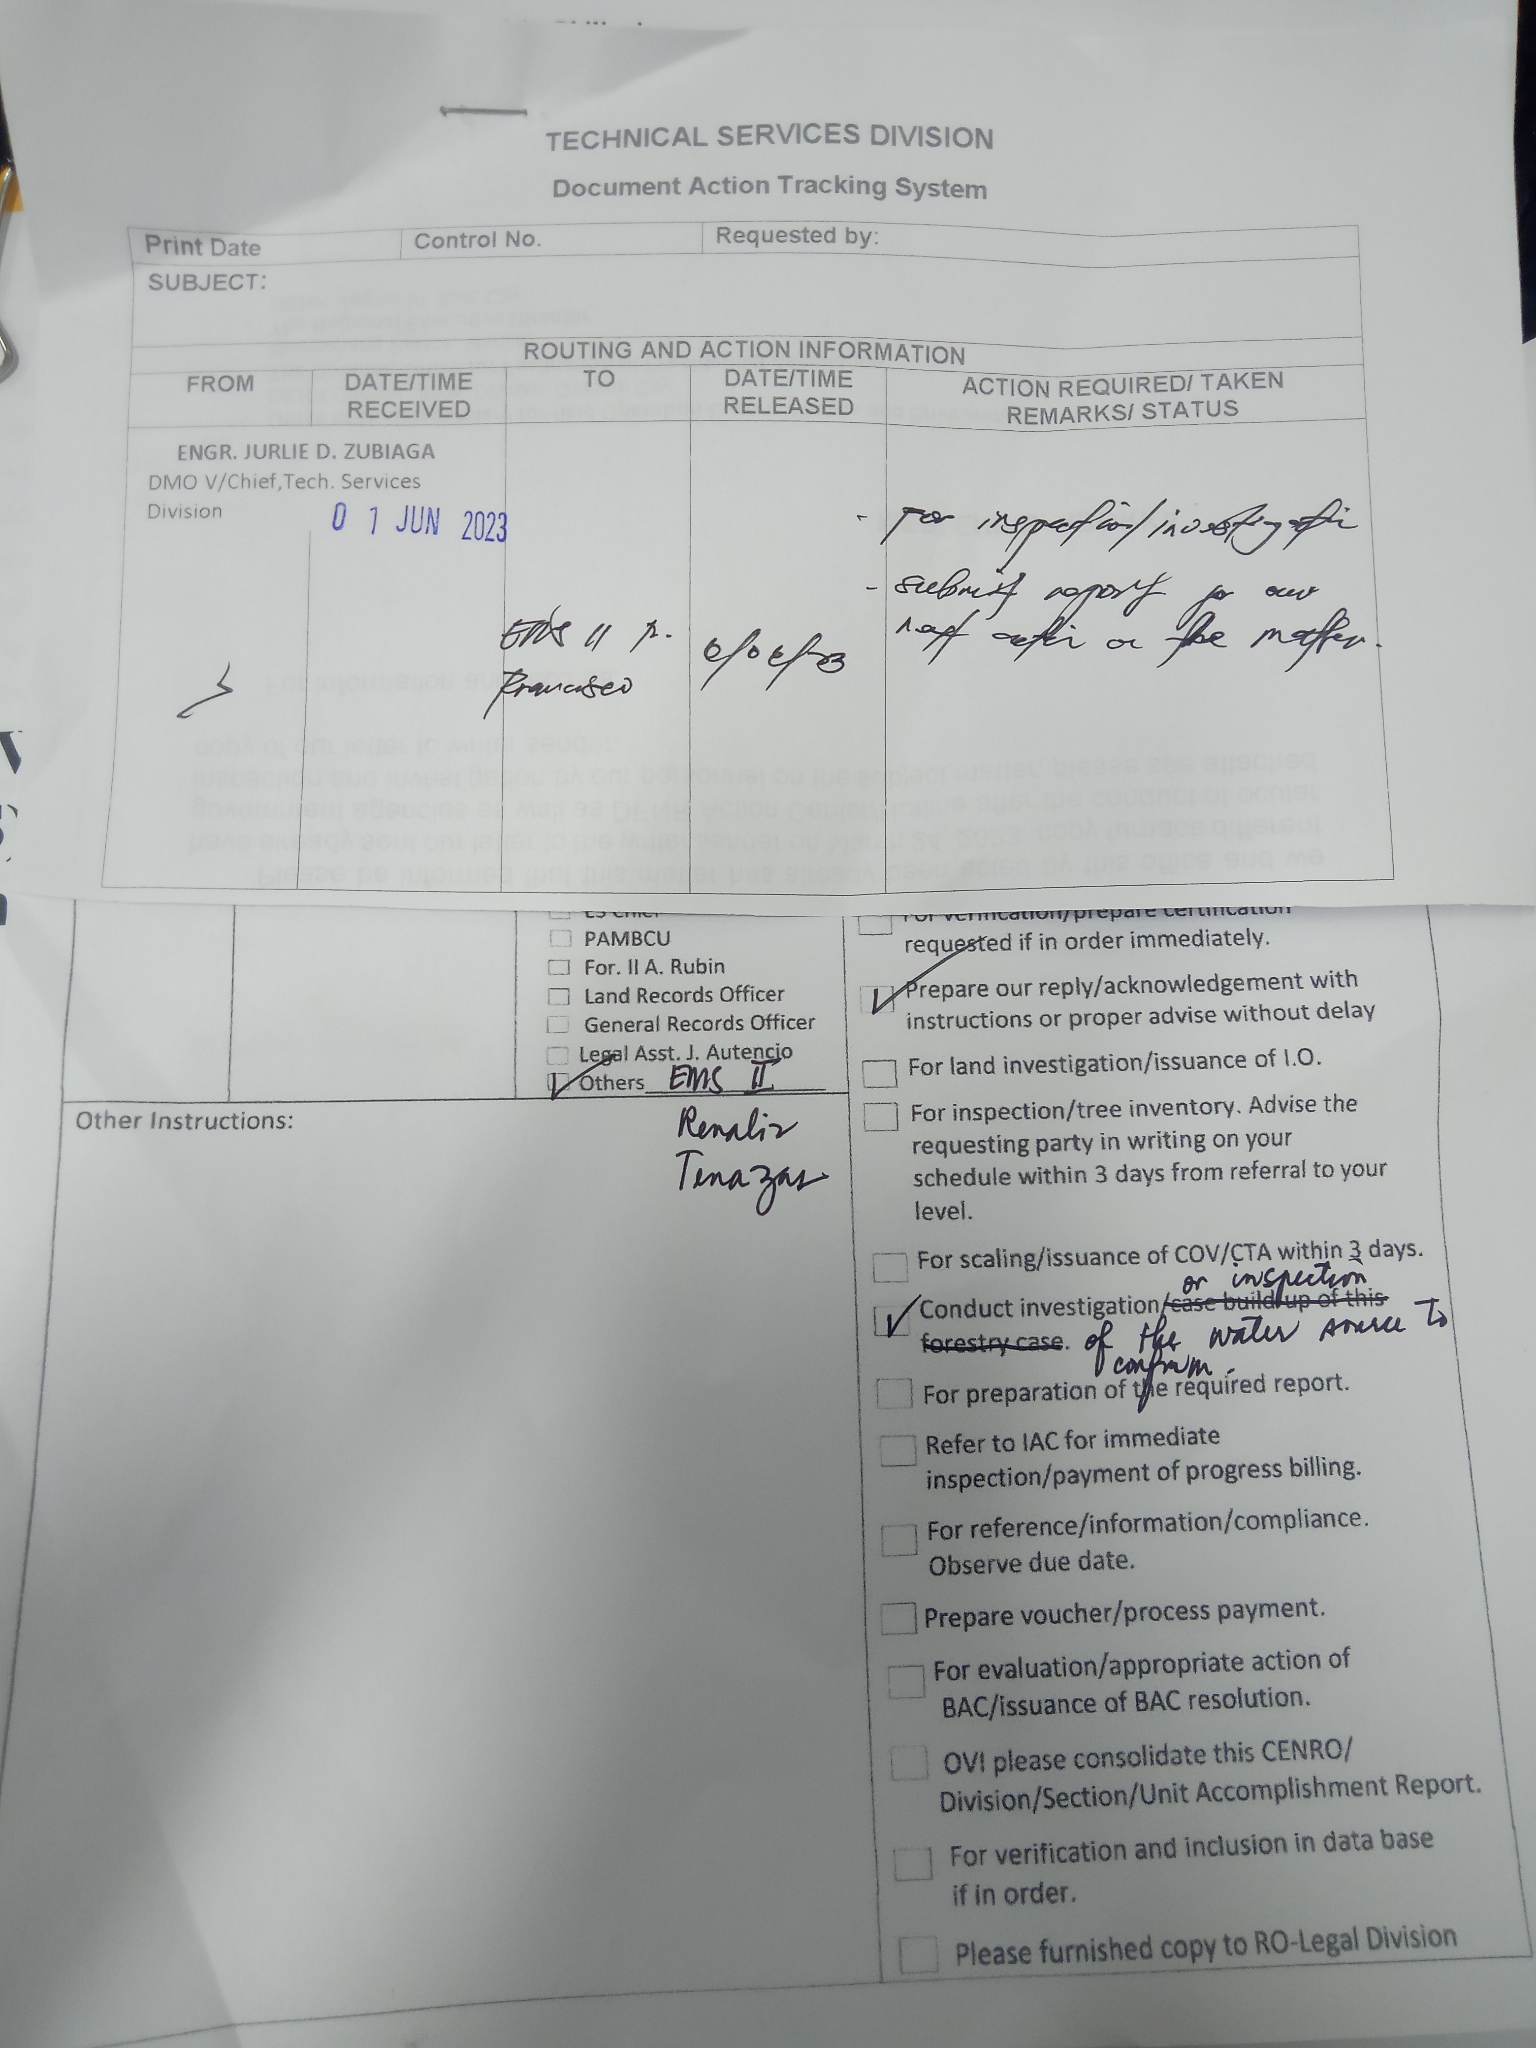 TECHNICAL SERVICES DIVISION
Document Action Tracking System
Print Date Control No. Requested by:
SUBJECT:
ROUTING AND ACTION INFORMATION
FROM DATE/TIME RECEIVED TO DATE/TIME RELEASED ACTION REQUIRED/ TAKEN REMARKS/ STATUS
ENGR. JURLIE D. ZUBIAGA
DMO V/Chief,Tech. Services
Division
01 JUN 2023
EMS II
Francisco
- For inspection/investigation
- submit report for our
next action on the matter.
PAMBCU
For. II A. Rubin
Land Records Officer
General Records Officer
Legal Asst. J. Autencio
Others EMS II
Renaliz
Tenazas
Other Instructions:
For verification/prepare certification
requested if in order immediately.
Prepare our reply/acknowledgement with
instructions or proper advise without delay
For land investigation/issuance of I.O.
For inspection/tree inventory. Advise the
requesting party in writing on your
schedule within 3 days from referral to your
level.
For scaling/issuance of COV/CTA within 3 days.
or inspection
Conduct investigation/case build up of this
forestry case. of the water source to
confirm.
For preparation of the required report.
Refer to IAC for immediate
inspection/payment of progress billing.
For reference/information/compliance.
Observe due date.
Prepare voucher/process payment.
For evaluation/appropriate action of
BAC/issuance of BAC resolution.
OVI please consolidate this CENRO/
Division/Section/Unit Accomplishment Report.
For verification and inclusion in data base
if in order.
Please furnished copy to RO-Legal Division